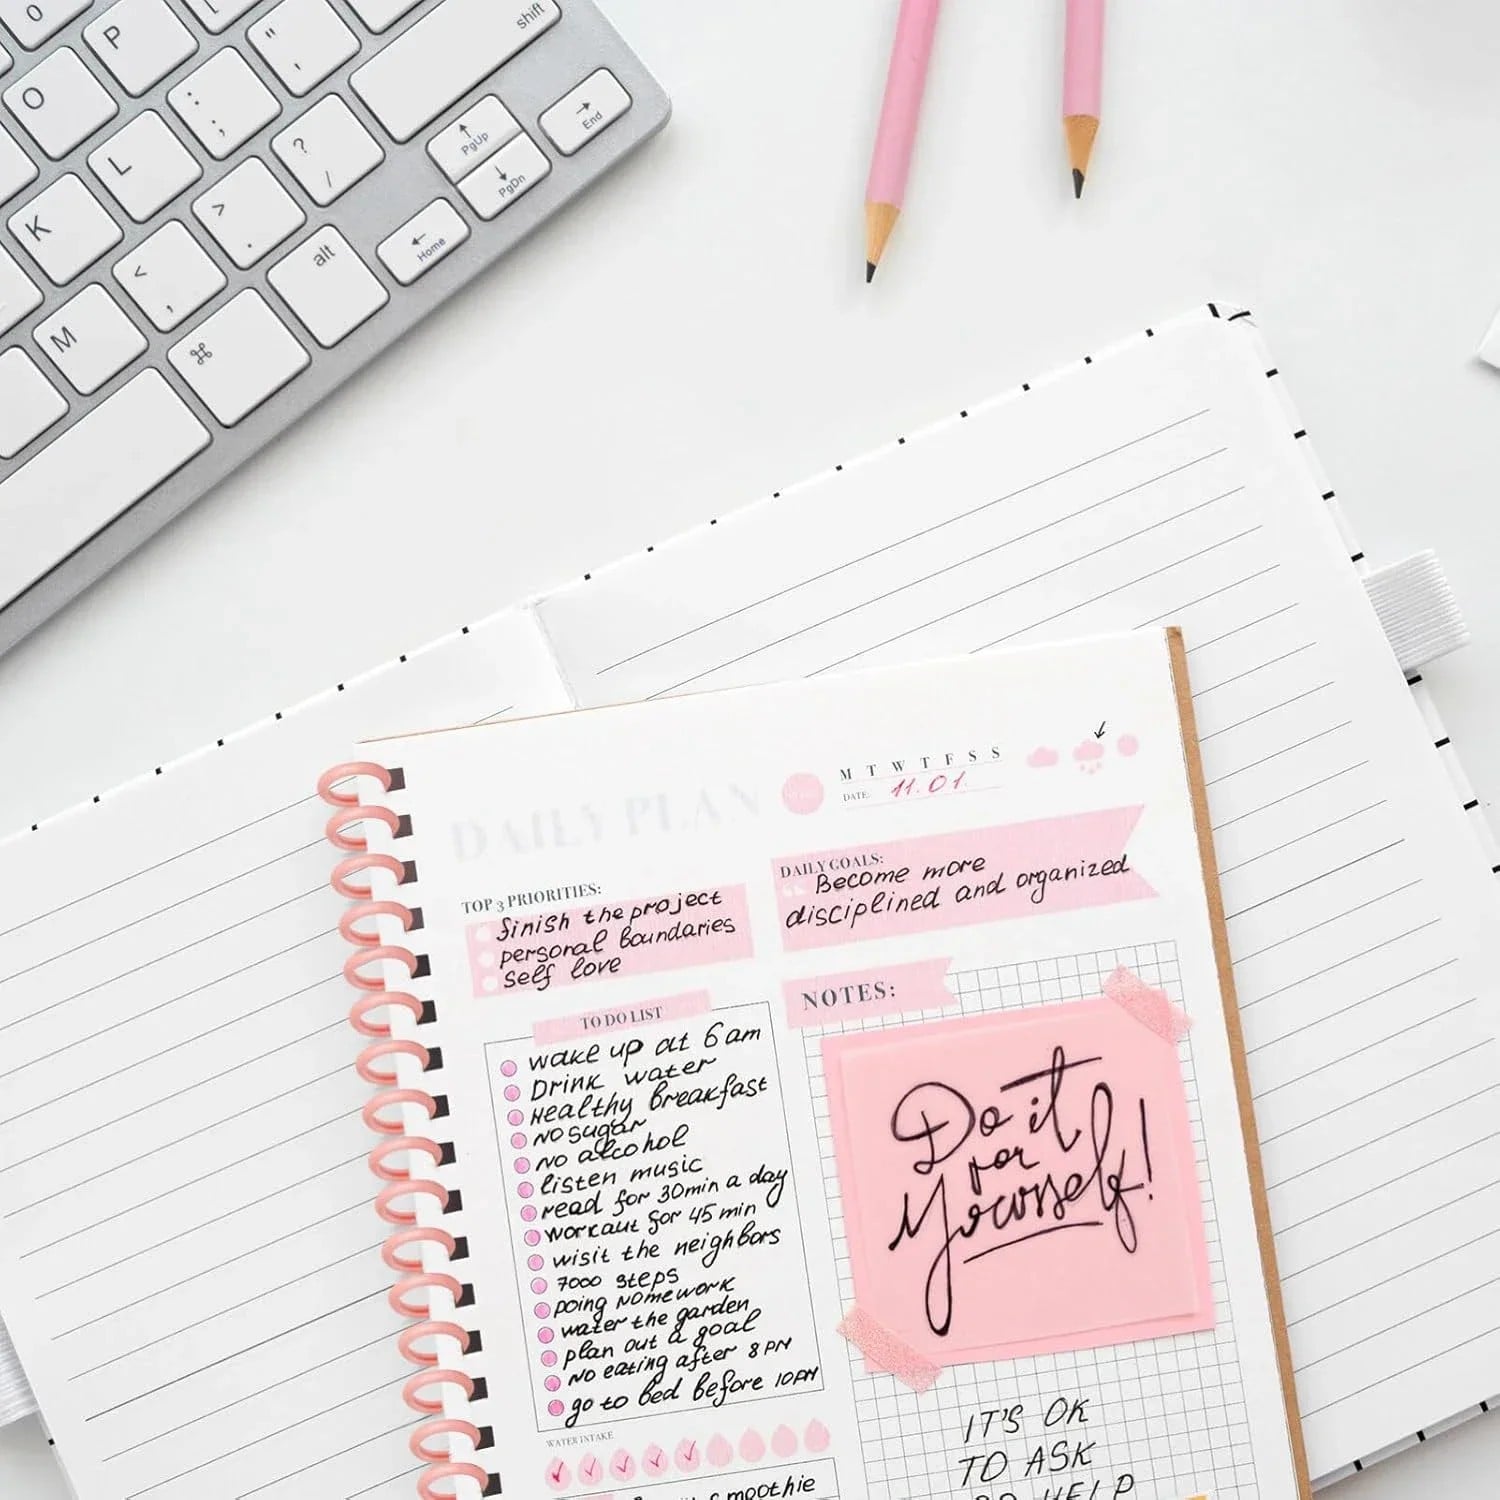 O
P
shift
O
L
: ;
" '
PgUp
End
PgDn
? /
K
> .
Home
< ,
alt
M
⌘
DAILY PLAN
M T W T F S S
DATE: 11.01.
TOP 3 PRIORITIES:
finish the project
personal boundaries
self love
DAILY GOALS:
Become more
disciplined and organized
TO DO LIST
wake up at 6 am
Drink water
Healthy breakfast
No sugar
No alcohol
listen music
read for 30min a day
workaut for 45 min
wisit the neighbors
7000 steps
Doing Homework
water the garden
plan out a goal
No eating after 8 PM
go to bed before 10PM
WATER INTAKE
smoothie
NOTES:
Do it
for
Yourself!
IT'S OK
TO ASK
HELP